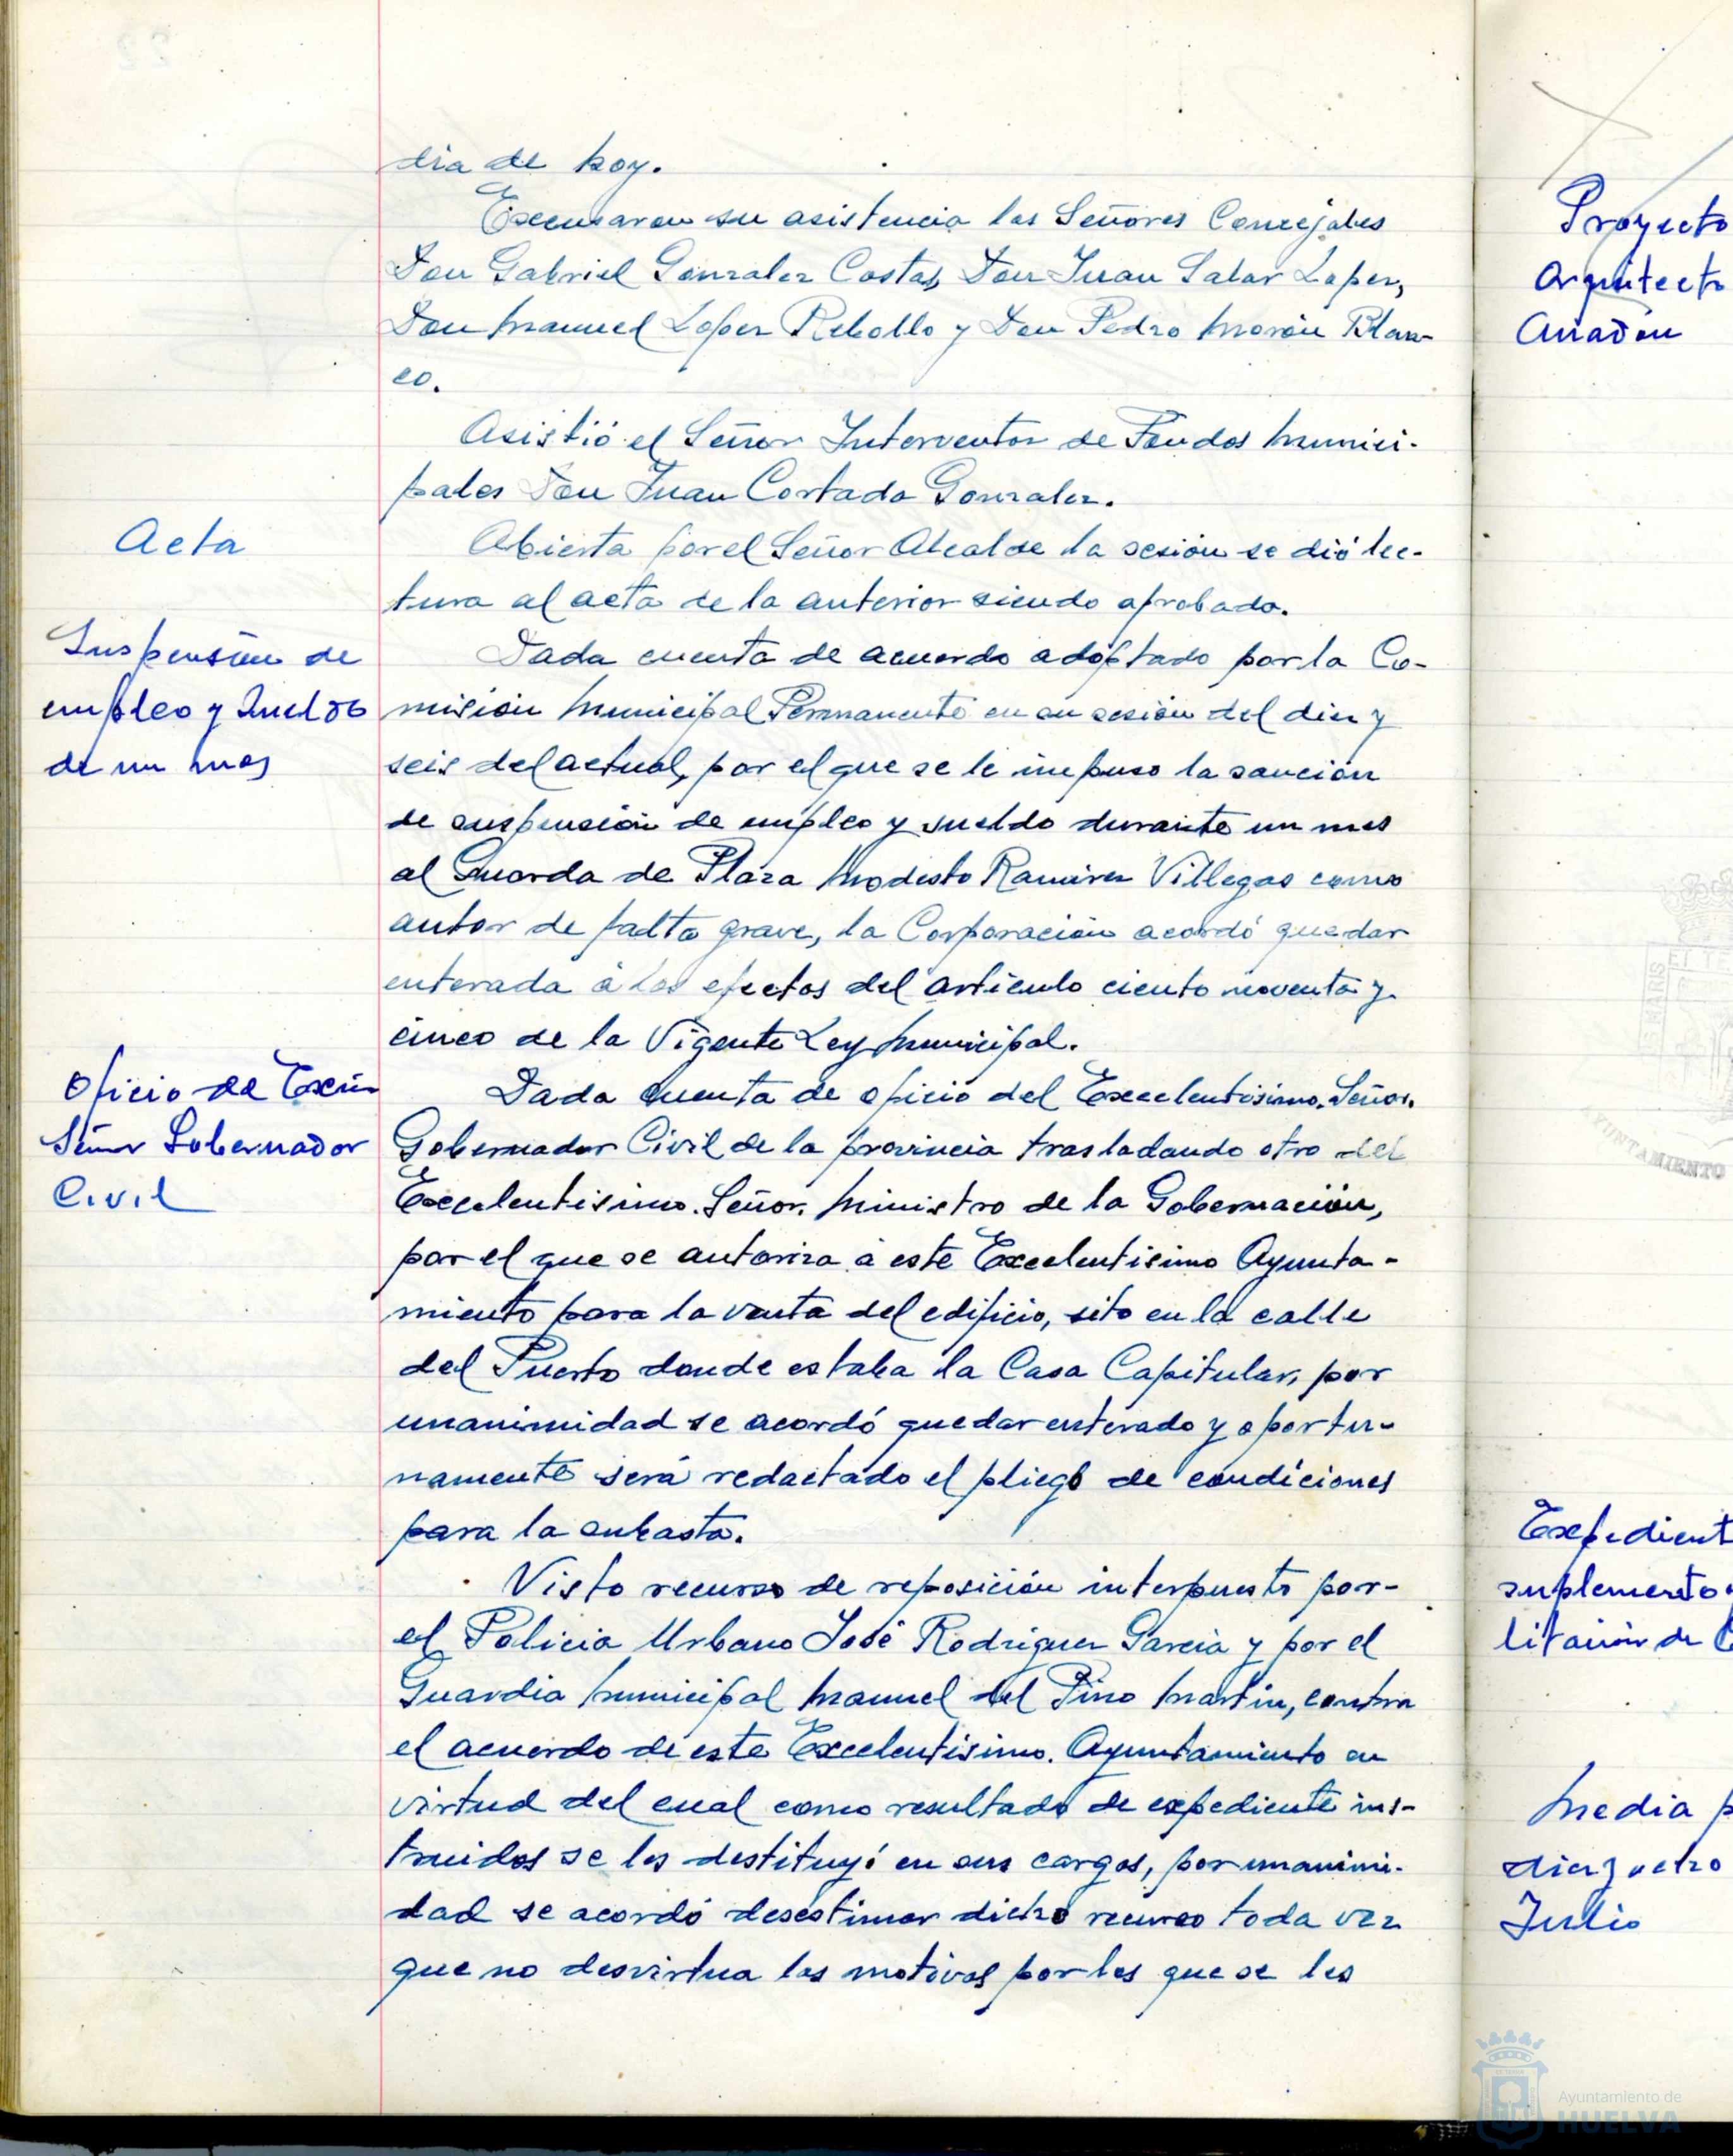 dia de hoy.
Excusaron su asistencia los Señores Concejales
Don Gabriel Gonzalez Costas, Don Juan Salar Lopez,
Don Manuel Lopez Rebollo y Don Pedro Morón Blan-
co.
Asistió el Señor Interventor de Fondos Munici-
pales Don Juan Cortado Gonzalez.
Acta
Abierta por el Señor Alcalde la sesión se dió lec-
tura al acta de la anterior siendo aprobada.
Suspensión de
empleo y Sueldo
de un mes
Dada cuenta de acuerdo adoptado por la Co-
misión Municipal Permanente en su sesión del diez y
seis del actual, por el que se le impuso la sanción
de suspensión de empleo y sueldo durante un mes
al Guarda de Plaza Modesto Ramirez Villegas como
autor de falta grave, la Corporación acordó quedar
enterada á los efectos del articulo ciento noventa y
cinco de la Vigente Ley Municipal.
Oficio de Excmo
Señor Gobernador
Civil
Dada cuenta de oficio del Excelentisimo. Señor.
Gobernador Civil de la provincia trasladando otro del
Excelentisimo. Señor. Ministro de la Gobernación,
por el que se autoriza á este Excelentisimo Ayunta-
miento para la venta del edificio, sito en la calle
del Puerto donde estaba la Casa Capitular, por
unanimidad se acordó quedar enterado y oportu-
namente será redactado el pliego de condiciones
para la subasta.
Visto recurso de reposición interpuesto por-
el Policia Urbano José Rodriguez Garcia y por el
Guardia Municipal Manuel del Pino Martin, contra
el acuerdo de este Excelentisimo. Ayuntamiento en
virtud del cual como resultado de expediente ins-
truidos se les destituyó en sus cargos, por unanimi-
dad se acordó desestimar dicho recurso toda vez
que no desvirtua los motivos por los que se les
Proyecto
Arquitecto
Anadón
Expedient
suplemento
litación de
Media p
diez y ocho
Julio
AYUNTAMIENTO
Ayuntamiento de
HUELVA